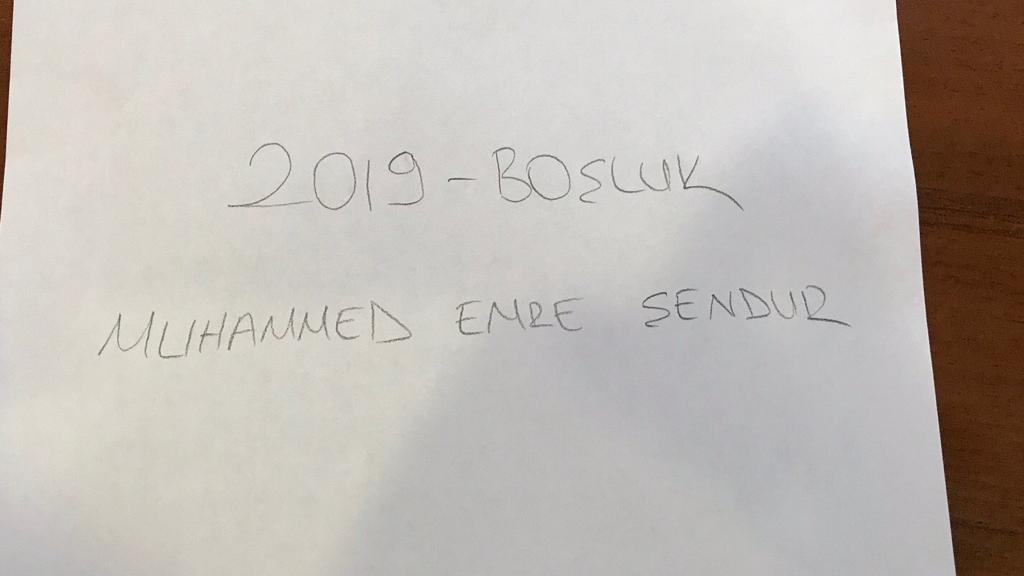 2019-BOŞLUK
MUHAMMED EMRE ŞENDUR